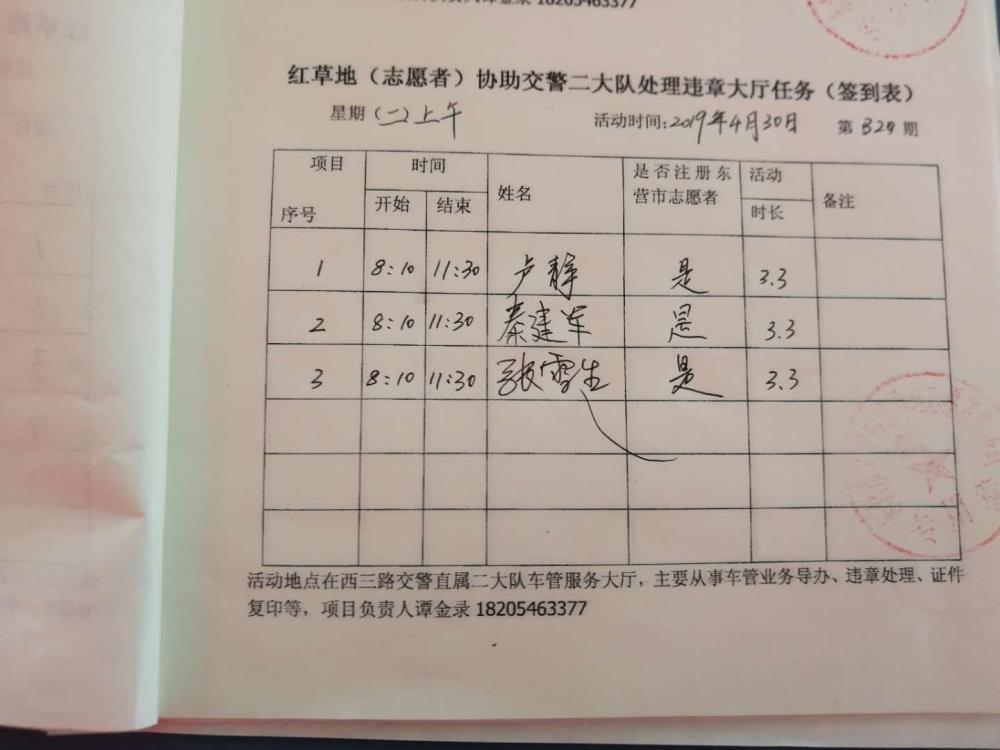 项目负责人谭金录 18205463377
红草地（志愿者）协助交警二大队处理违章大厅任务（签到表）
星期（二）上午 活动时间:2019年4月30日 第329期
项目 时间 姓名 是否注册东营市志愿者 活动时长 备注
序号 开始 结束
1 8:10 11:30 卢静 是 3.3
2 8:10 11:30 秦建军 是 3.3
3 8:10 11:30 张雪生 是 3.3
活动地点在西三路交警直属二大队车管服务大厅，主要从事车管业务导办、违章处理、证件
复印等，项目负责人谭金录 18205463377
专用章